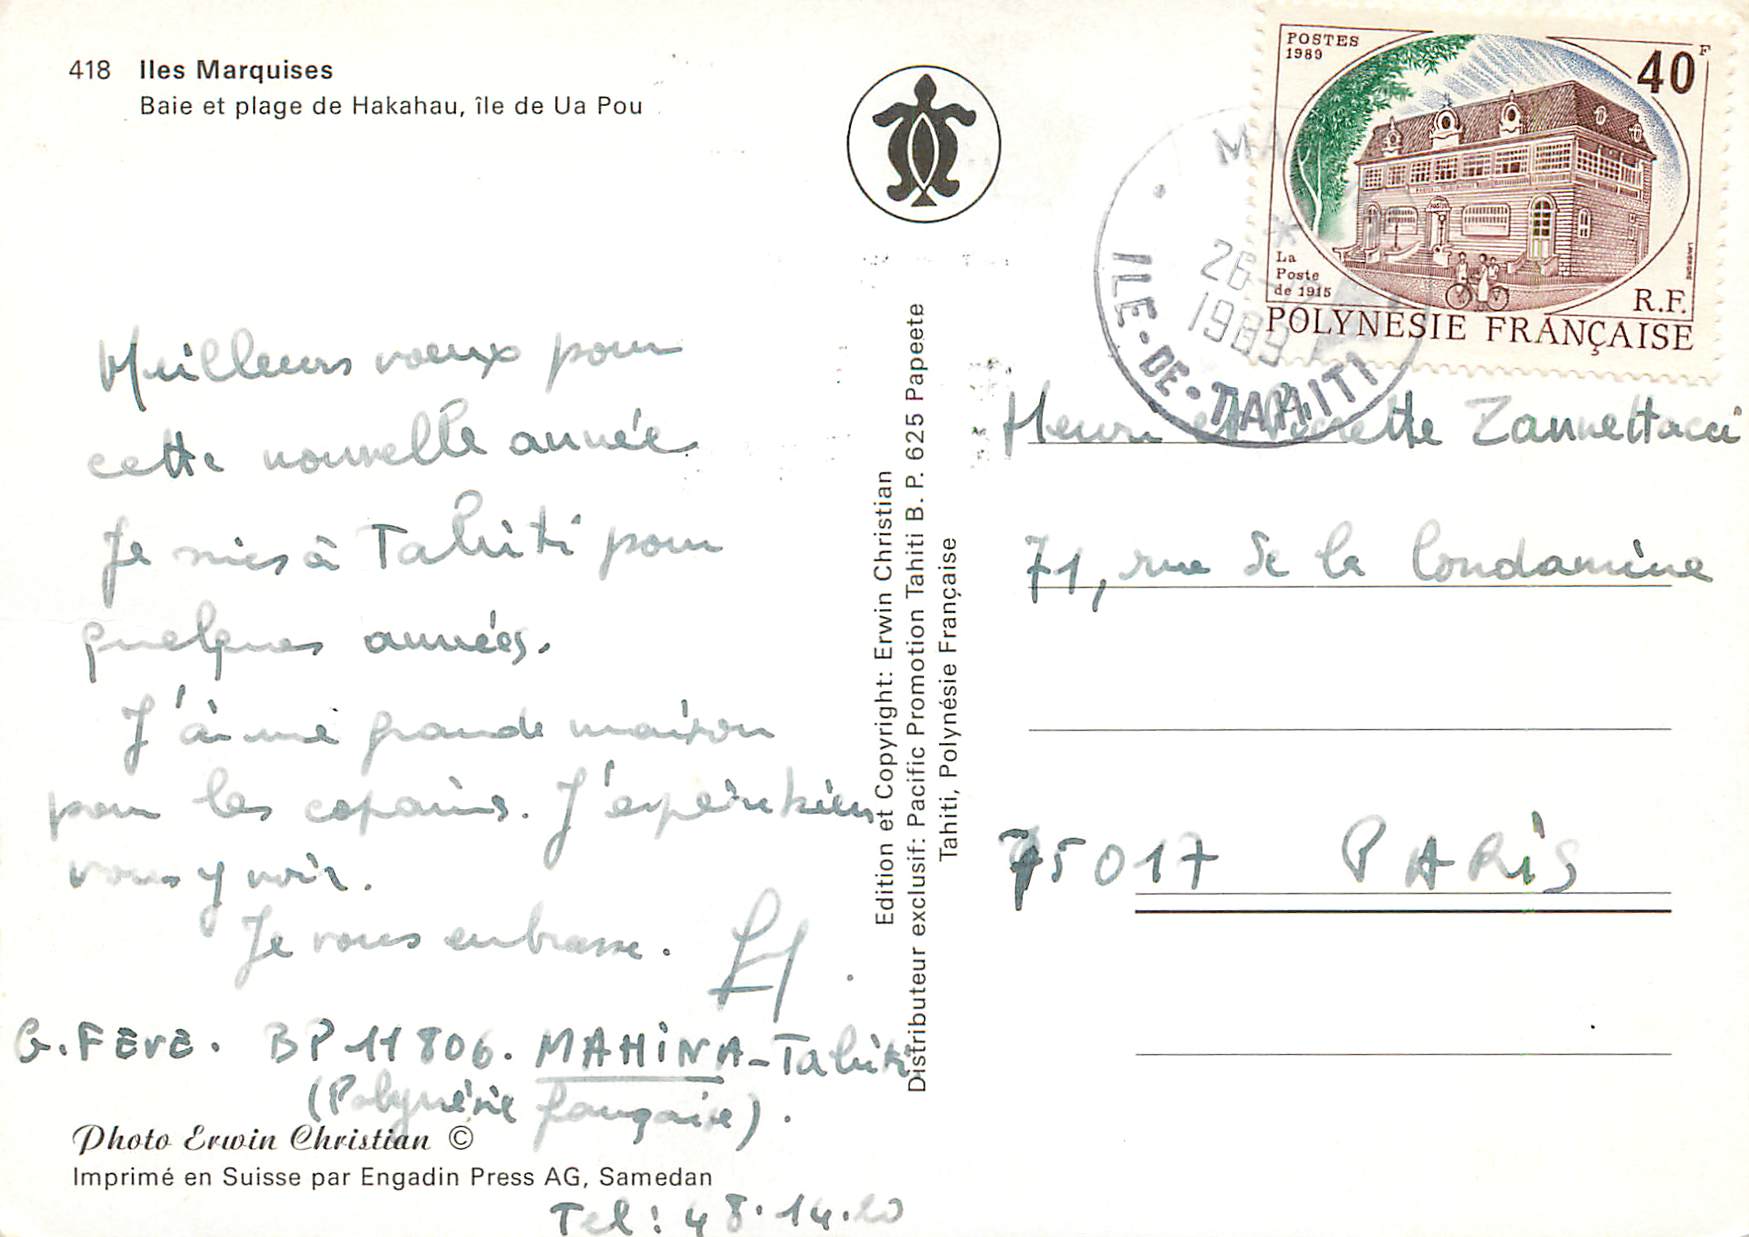 418 Iles Marquises
Baie et plage de Hakahau, île de Ua Pou
Meilleurs voeux pour
cette nouvelle année
Je suis à Tahiti pour
quelques années.
J'ai une grande maison
pour les copains. J'espère bien
vous y voir.
Je vous embrasse.
G. FEVE. BP 11806. MAHINA - Tahiti
(Polynésie française).
Photo Erwin Christian ©
Imprimé en Suisse par Engadin Press AG, Samedan
Tel: 48.14.20
Edition et Copyright: Erwin Christian
Distributeur exclusif: Pacific Promotion Tahiti B. P. 625 Papeete
Tahiti, Polynésie Française
POSTES
1989
40F
La
Poste
de 1915
R.F.
POLYNESIE FRANÇAISE
MA
26
1989
ILE-DE-TAHITI
Henri et Zannettacci
71, rue de la Condamine
75017 PARIS